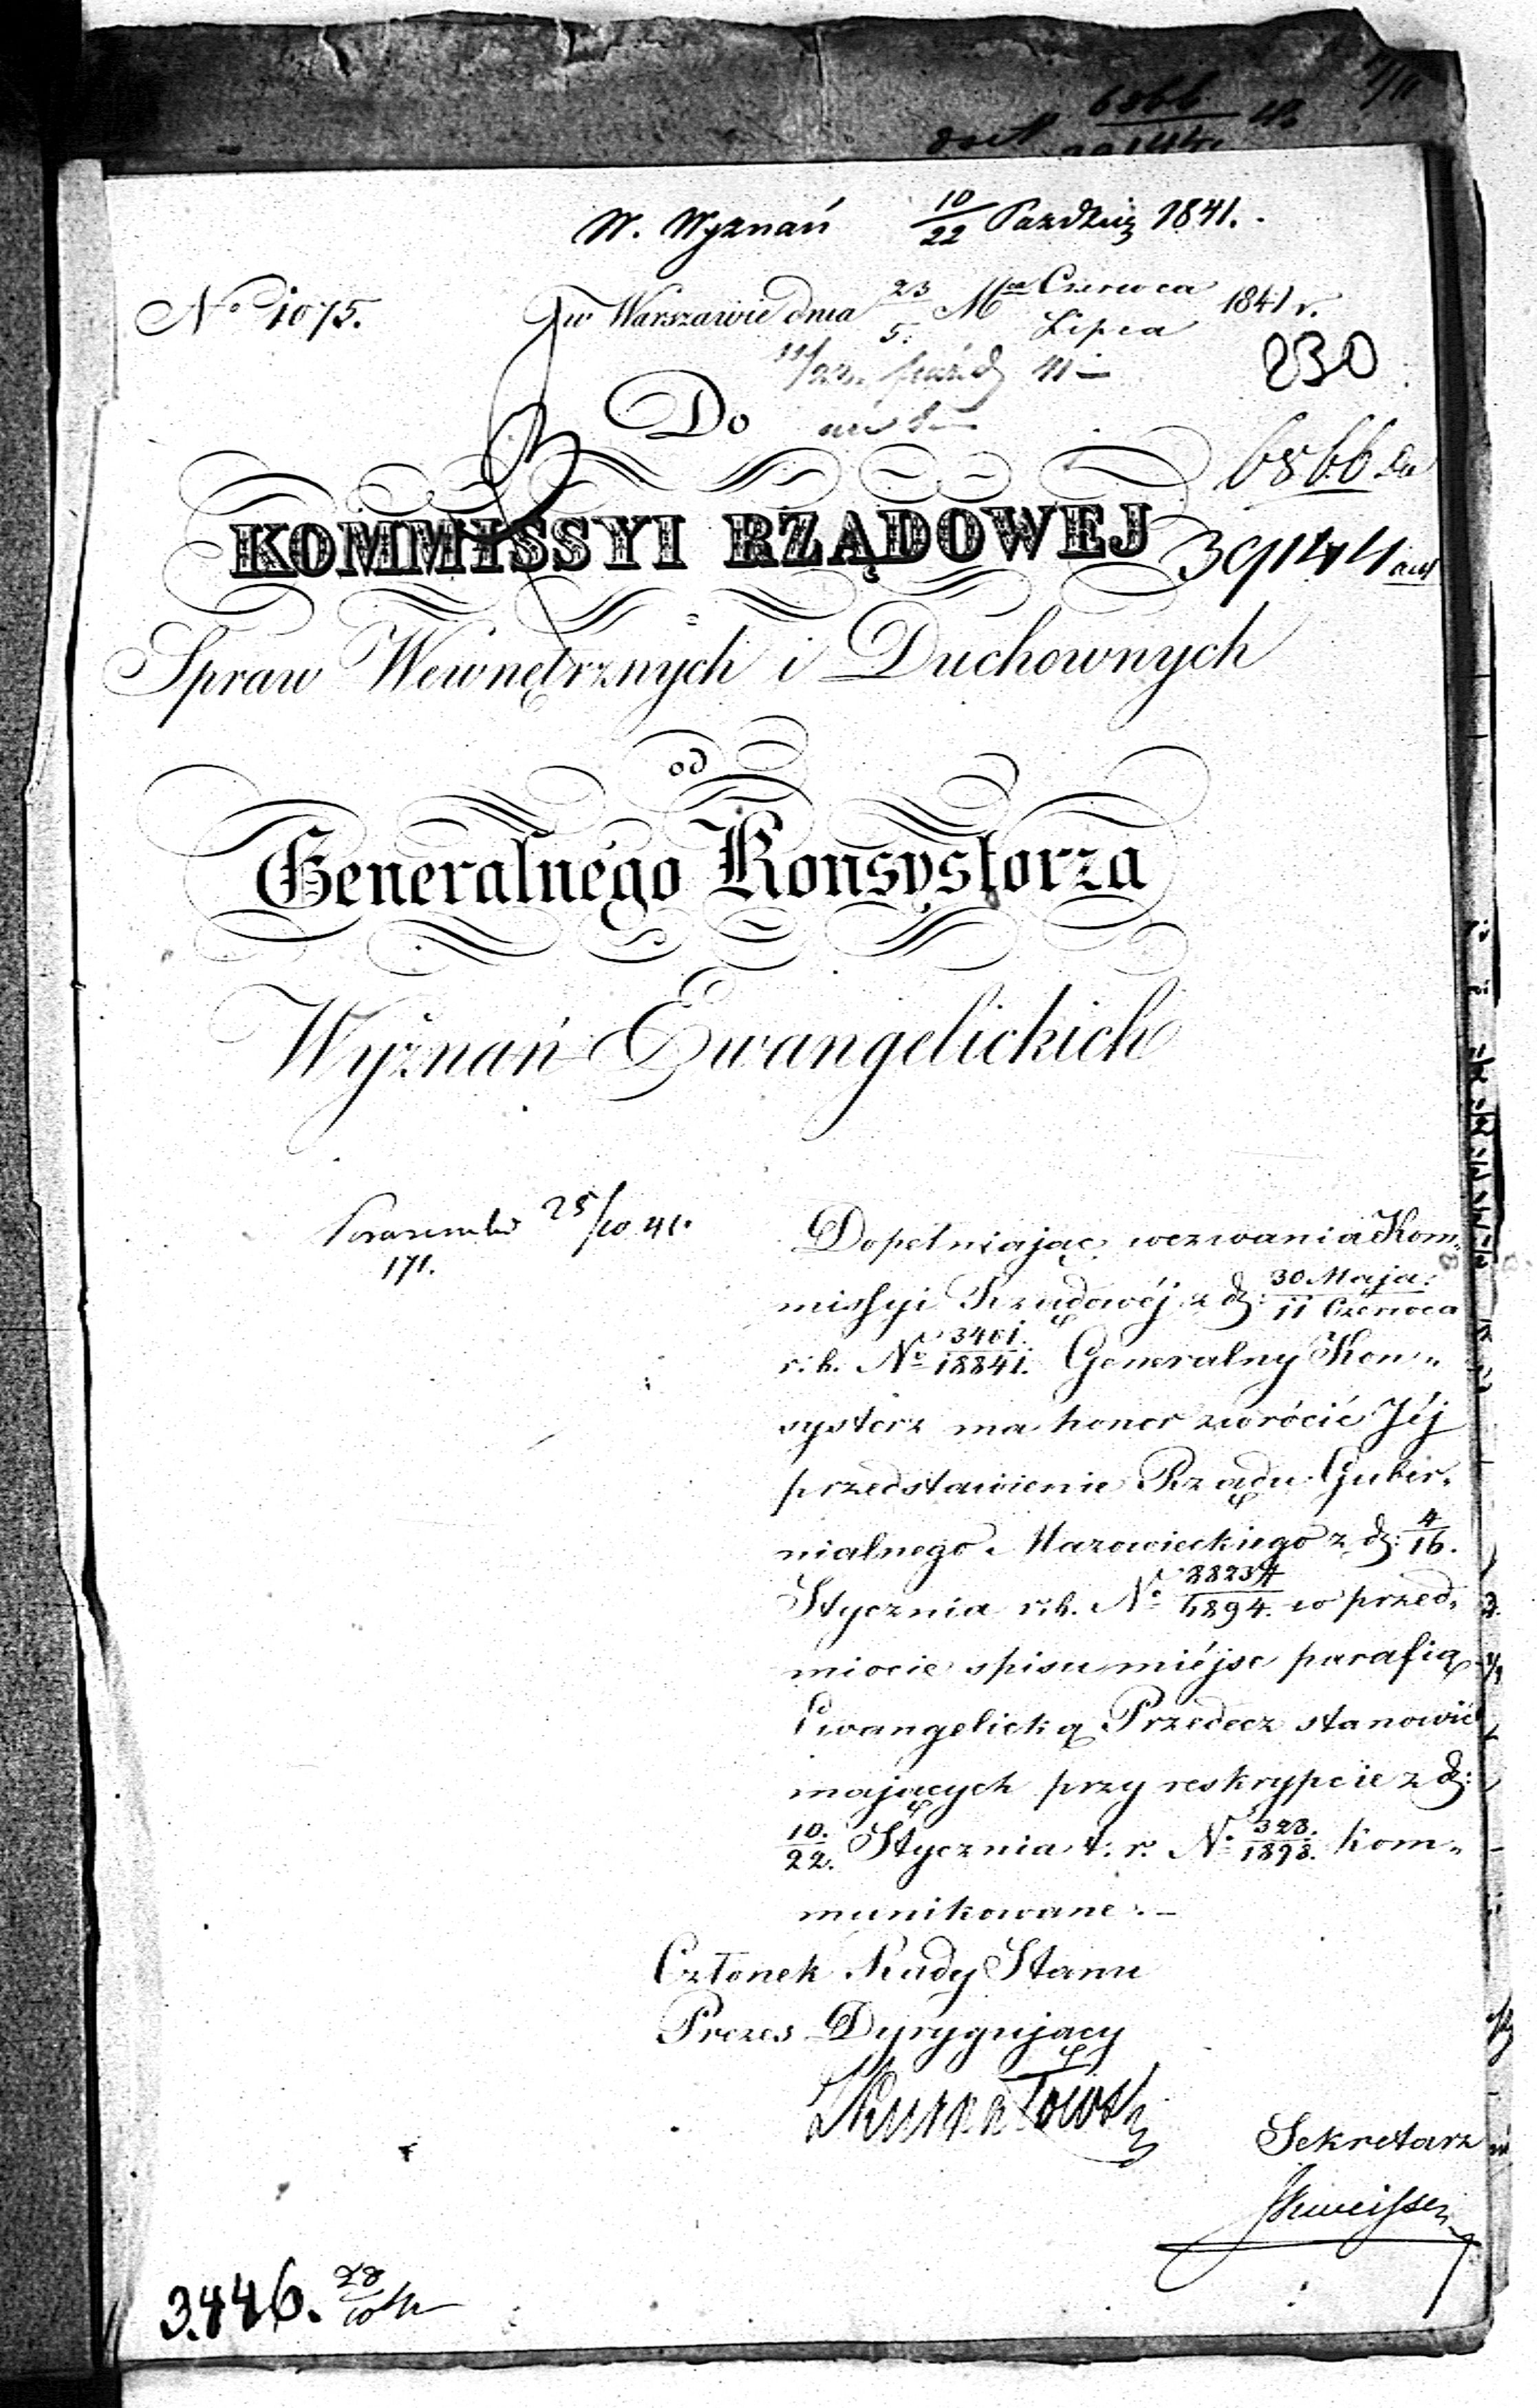 W. Wyznań 10/22 Paździer 1841.
No 1075. w Warszawie dnia 23/5 Mca Czerwca/Lipca 1841 r.
230
Do
6866
KOMMISSYI RZĄDOWEJ
39144
Spraw Wewnętrznych i Duchownych
od
Generalnégo Konsystorza
Wyznań Ewangelickich
25/10 41.
171.
Dopełniając wezwania Kom„
missyi Rządowéj z d: 30 Maja/11 Czerwca
r: b. No 3401/18841. Generalny Kon„
systorz ma honor zwrócić Jéj
przedstawienie Rządu Guber„
nialnego Mazowieckiego z d: 4/16.
Stycznia r: b. No 28234/4894. w przed„
miocie spisu miéjsc parafię
Ewangelicką Przedecz stanowić
mających przy reskrypcie z d:
10./22. Stycznia t: r: No 328./1898. kom„
munikowane. –
Członek Rady Stanu
Prezes Dyrygujący
Sekretarz
3.446. 28/10